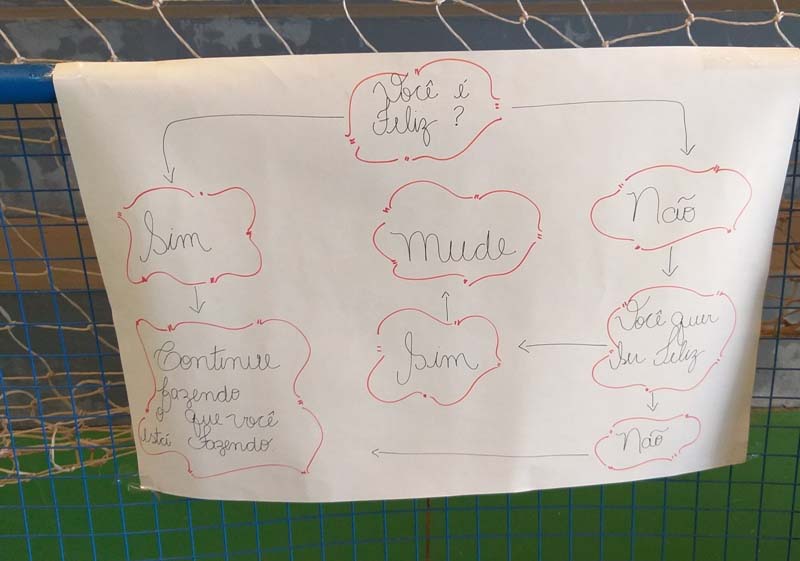 Você é
Feliz ?
Sim
Mude
Não
Continue
fazendo
o que você
está fazendo
Sim
Você quer
ser feliz
Não